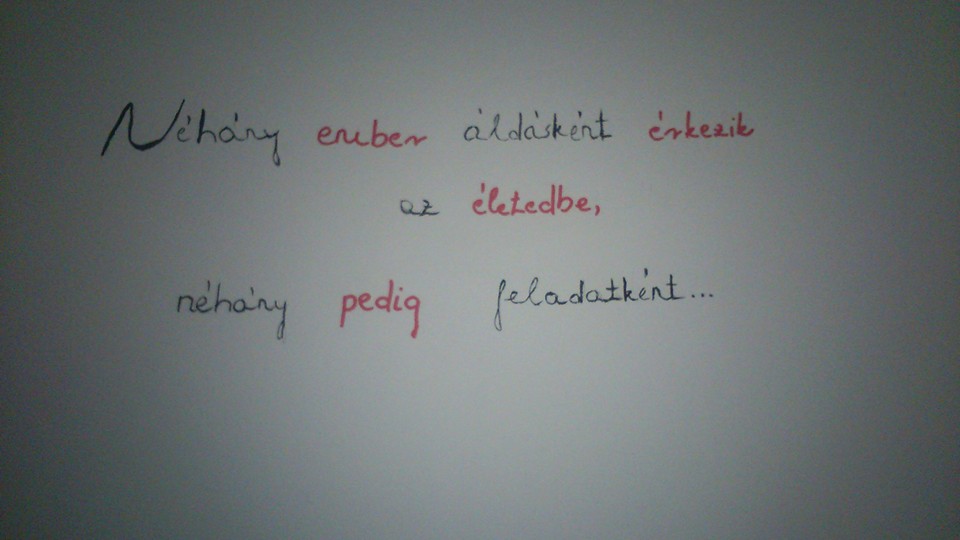 Néhány ember áldásként érkezik
az életedbe,
néhány pedig feladatként...